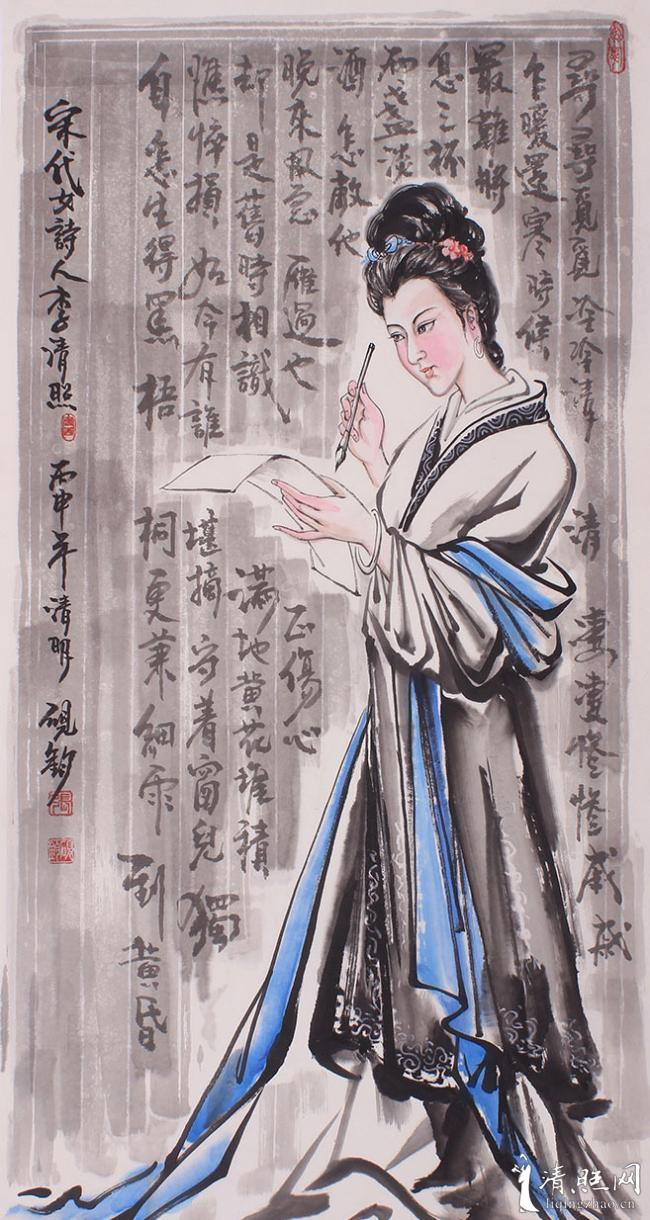 尋尋覓覓冷冷清清凄凄惨惨戚戚
乍暖還寒時候
最難將
息三杯
兩盞淡
酒怎敵他
晚来風急雁過也正傷心
却是舊時相識滿地黄花堆積
憔悴損如今有誰堪摘守着窗兒獨
自怎生得黑梧桐更兼細雨到黄昏
宋代女詩人李清照 丙申年清明 硯鈞
清照网
liqingzhao.cn